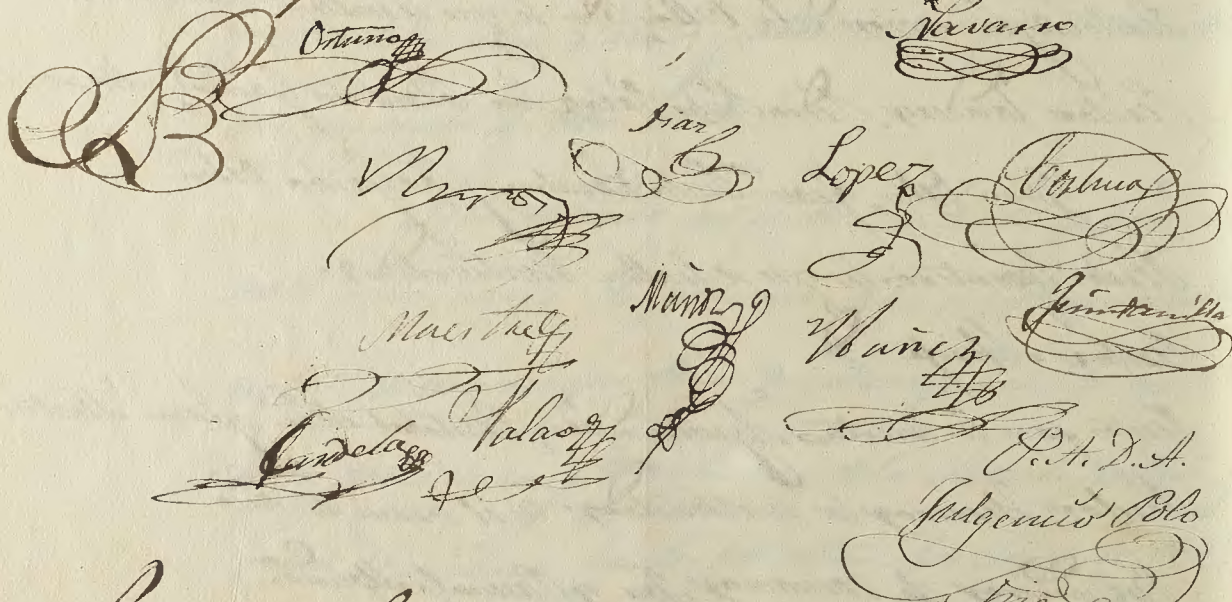 Ortuño
Navarro
Diaz
Lopez
Maestre
Muñoz
Ybañez
Quintanilla
Candela
Palao
P. A. D. A.
Fulgencio Polo